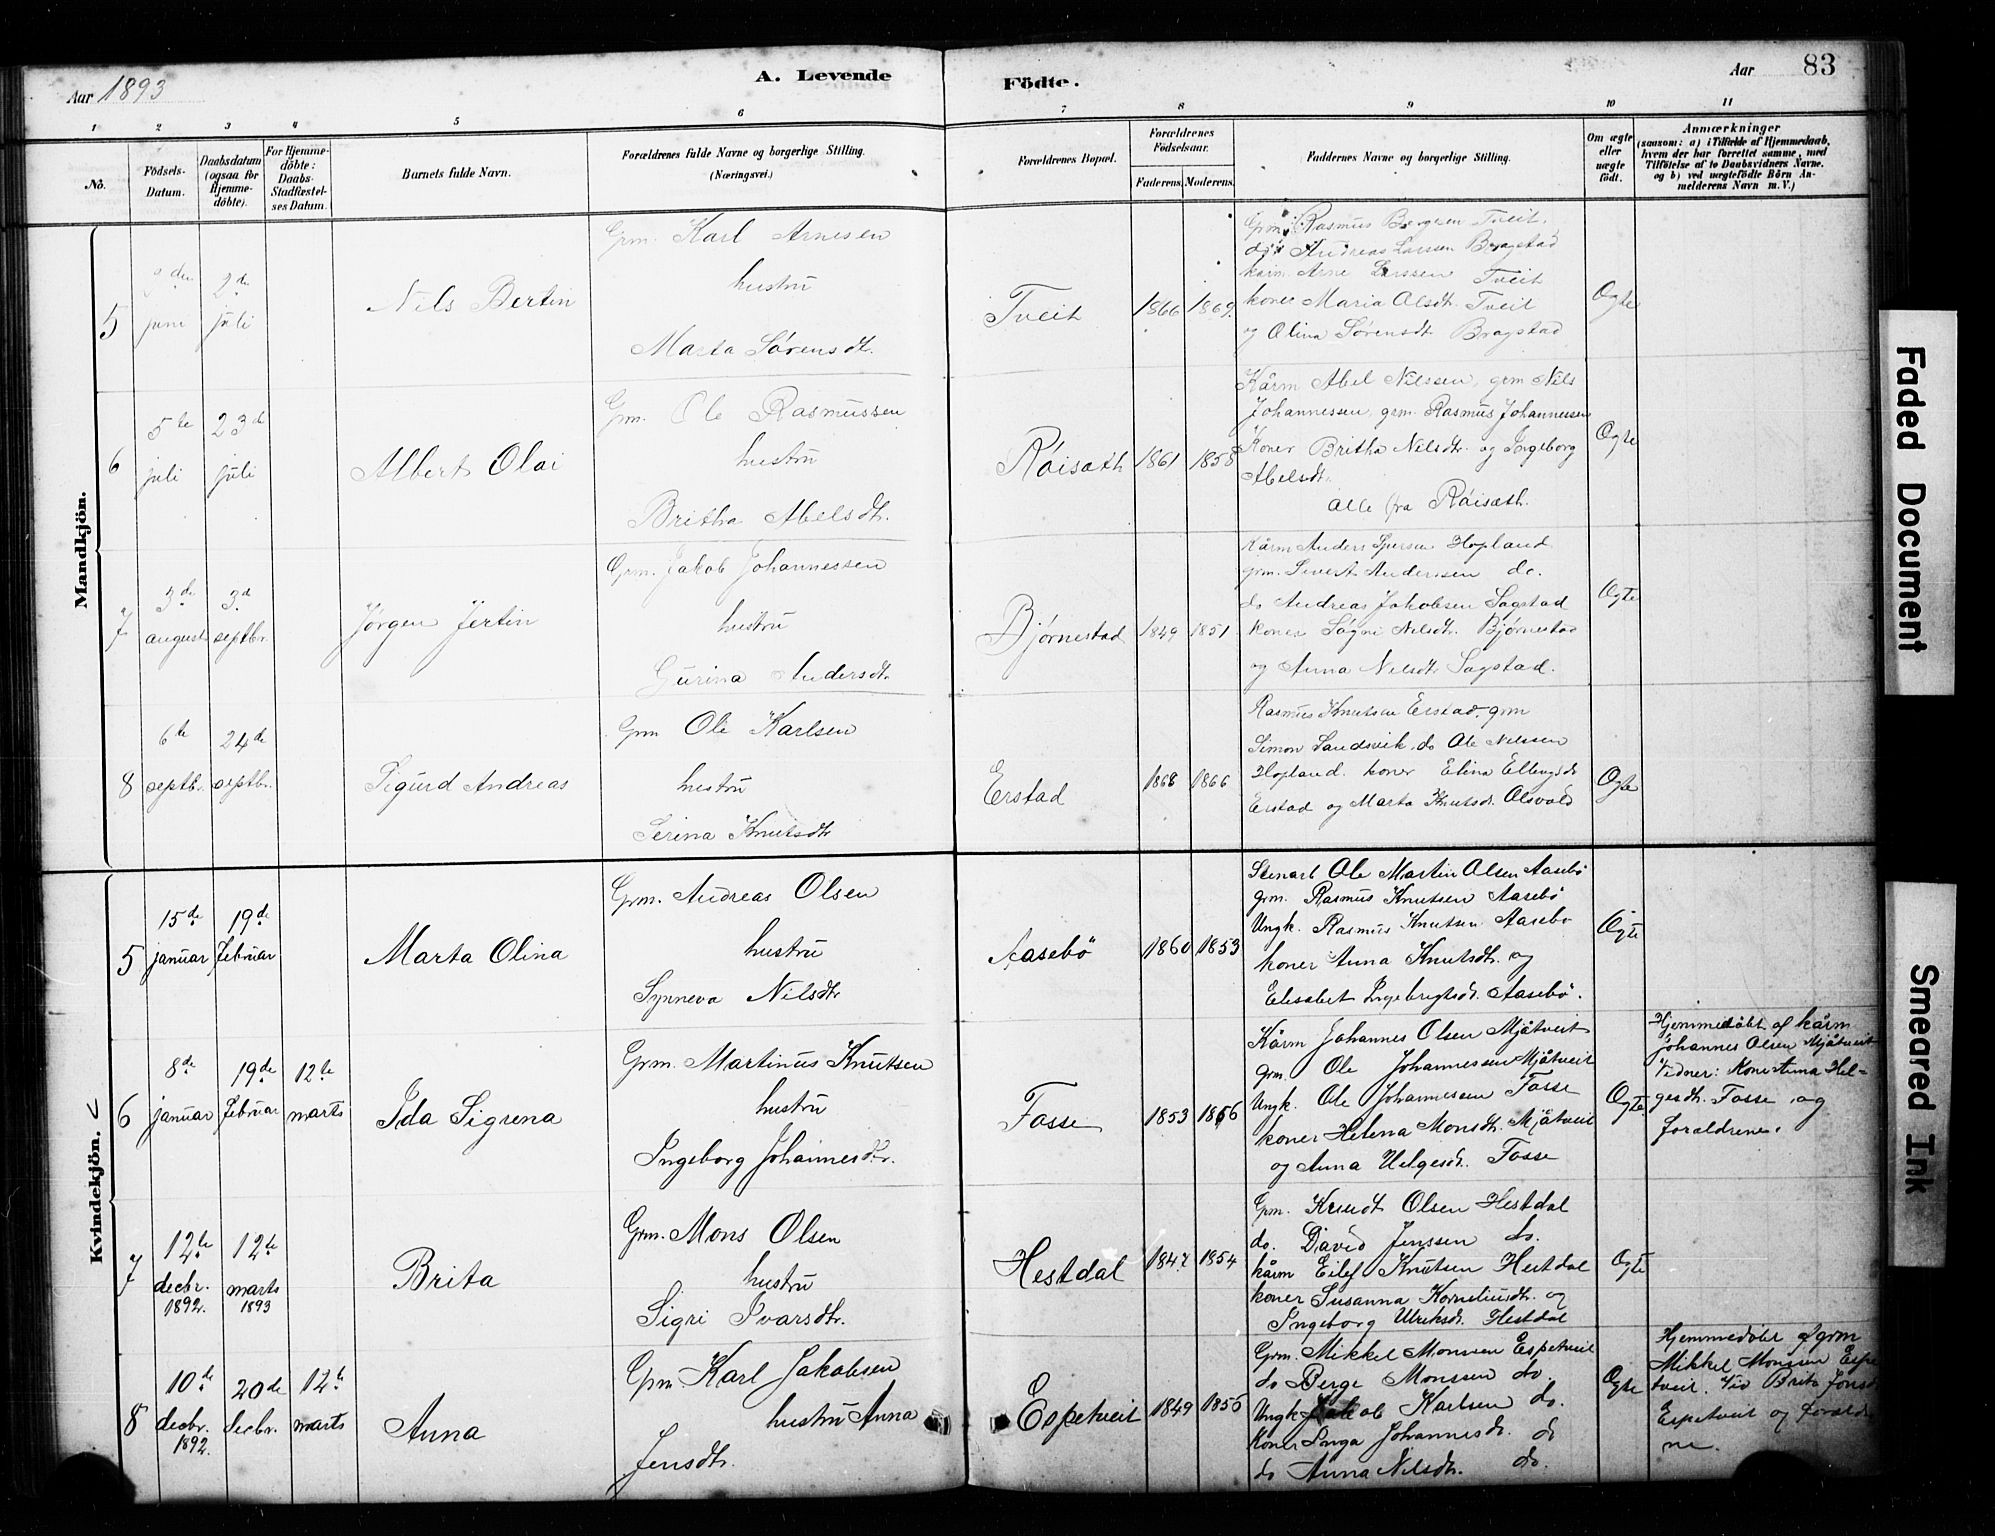 Aar 1893
A. Levende
Födte.
Aar
83
1
2
3
4
5
6
7
8
9
10
11
No.
Födsels-
Datum.
Daabsdatum
(ogsaa for
Hjemme-
döbte).
For Hjemme-
döbte:
Daabs-
Stadfæstel-
ses Datum.
Barnets fulde Navn.
Forældrenes fulde Navne og borgerlige Stilling.
(Næringsvei.)
Forældrenes Bopæl.
Forældrenes
Födselsaar.
Faderens.
Moderens.
Faddernes Navne og borgerlige Stilling.
Om ægte
eller
uægte
födt.
Anmærkninger
(saasom: a) i Tilfælde af Hjemmedaab,
hvem der har forrettet samme, med
Tilföielse af to Daabsvidners Navne.
og b) ved uægtefödte Börn An-
melderens Navn m. V.)
Mandkjön.
5
juni
2de
juli
Nils Bertin
Grm. Karl Arnesen
hustrú
Marta Sørensdt.
Tveit
1866
1869.
Rasmús Tveit.
do Andreas Larssen Bragstad
kårm. Arne Larssen Tveit
koner Maria Olsdt. Tveit
og Olina Sørensdt. Bragstad
Ogte
6
5te
juli
23de
júli
Albert Olai
Grm. Ole Rasmussen
hústrú
Britha Abelsdt.
Røisæth
1861
1858
Kårm Abel Nilssen, grm Nils
Johannessen, grm. Rasmús Johannessen
Koner Britha Nilsdtr. og Ingeborg
Abelsdt.
alle fra Røisæth.
Ogte
7
3de
august
3d
septbr.
Jørgen Jertin
Grm. Jakob Johannessen
hústrú
Gúrina Andersdtr.
Bjørnestad
1849
1851
Kårm Anders Hopland
grm. Sivert Andersen do.
do Andreas Jakobsen Sagstad
koner Søgni Nilsdtr. Bjørnestad
og Anna Nilsdt. Sagstad.
Ogte
8
6te
septbr.
24de
septbr.
Sigurd Andreas
Grm Ole Karlsen
hustrú
Serina Knutsdtr
Eerstad
1868
1866
Rasmús Knutsen Eerstad, grm
Simon Sandsvik, do Ole Nilssen
Hopland. koner Elina
Eerstad og Marta Knutsdt. Olsvold
Ogte
Kvindekjön.
5
15de
januar
19de
Februar
Marta Olina
Grm. Andreas Olsen
hustrú
Synneva Nilsdtr
Aasebö
1860
1853
Ole Martin Olsen Aasebö
grm. Rasmus Knutsen Aasebö
Ungk. Rasmus Knutsen Aasebø
koner Anna Knutsdtr. og
Elisabet Ingebrigtsdt. Aasebø.
Ogte
6
8de
januar
19de
Februar
12te
marts
Ida Sigrena
Grm. Martinus Knutsen
hustrú
Ingeborg Johannesdtr.
Fosse
1853
1856
Kårm Johannes Olsen Mjåtveit
grm. Ole Johannessen Mjåtveit
Ungk. Ole Johannessen Fosse
koner Helena Monsdtr. Mjåtveit
og Anna Helgesdt. Fosse
Ogte.
Hjemmedøbt af kårm
Johannes Olsen Mjåtveit
Vidner: Kone Anna Hel-
gesdt. Fosse og
foraldrene.
7
12te
decbr.
1892.
12te
marts
1893
Brita
Grm. Mons Olsen
hustrú
Sigri Ivarsdtr.
Hestdal
1847
1854
Grm. Knudt Olsen Hestdal
do. David Jenssen do.
kårm Eilef Knutsen Hestdal
koner Susanna Korneliusdtr. og
Ingeborg Ulriksdt. Hestdal
Ogte
8
10de
decbr.
1892.
20de
decbr.
12te
marts
Anna
Grm. Karl Jakobsen
hustrú Anna
Jensdtr.
Espetveit
1849
1856
Grm. Mikkel Monssen Espetveit
do Berge Monssen do.
Ungk Jakob Karlsen do.
Koner Inga Johannesdt. do
do Anna Nilsdtr. do.
Ogte
Hjemmedøbt af grm
Mikkel Monssen Espe
tveit. Vid Brita Jonsd
Espetveit og forald
ne.
Faded Document
Smeared Ink